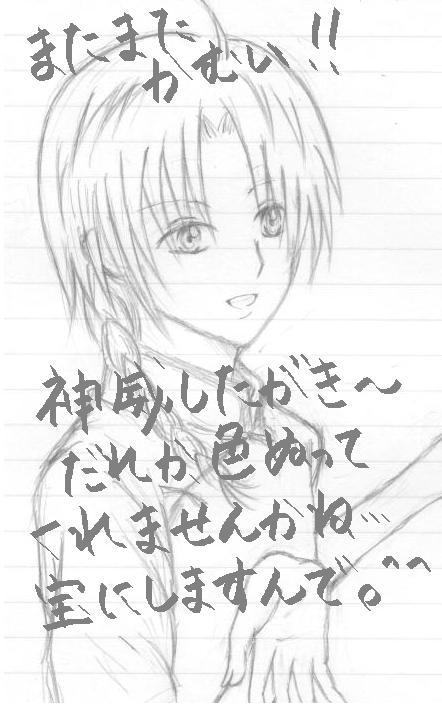 またまた
かむい!!
神威したがき〜
だれか色ぬって
くれませんかね…
宝にしますんで。^^